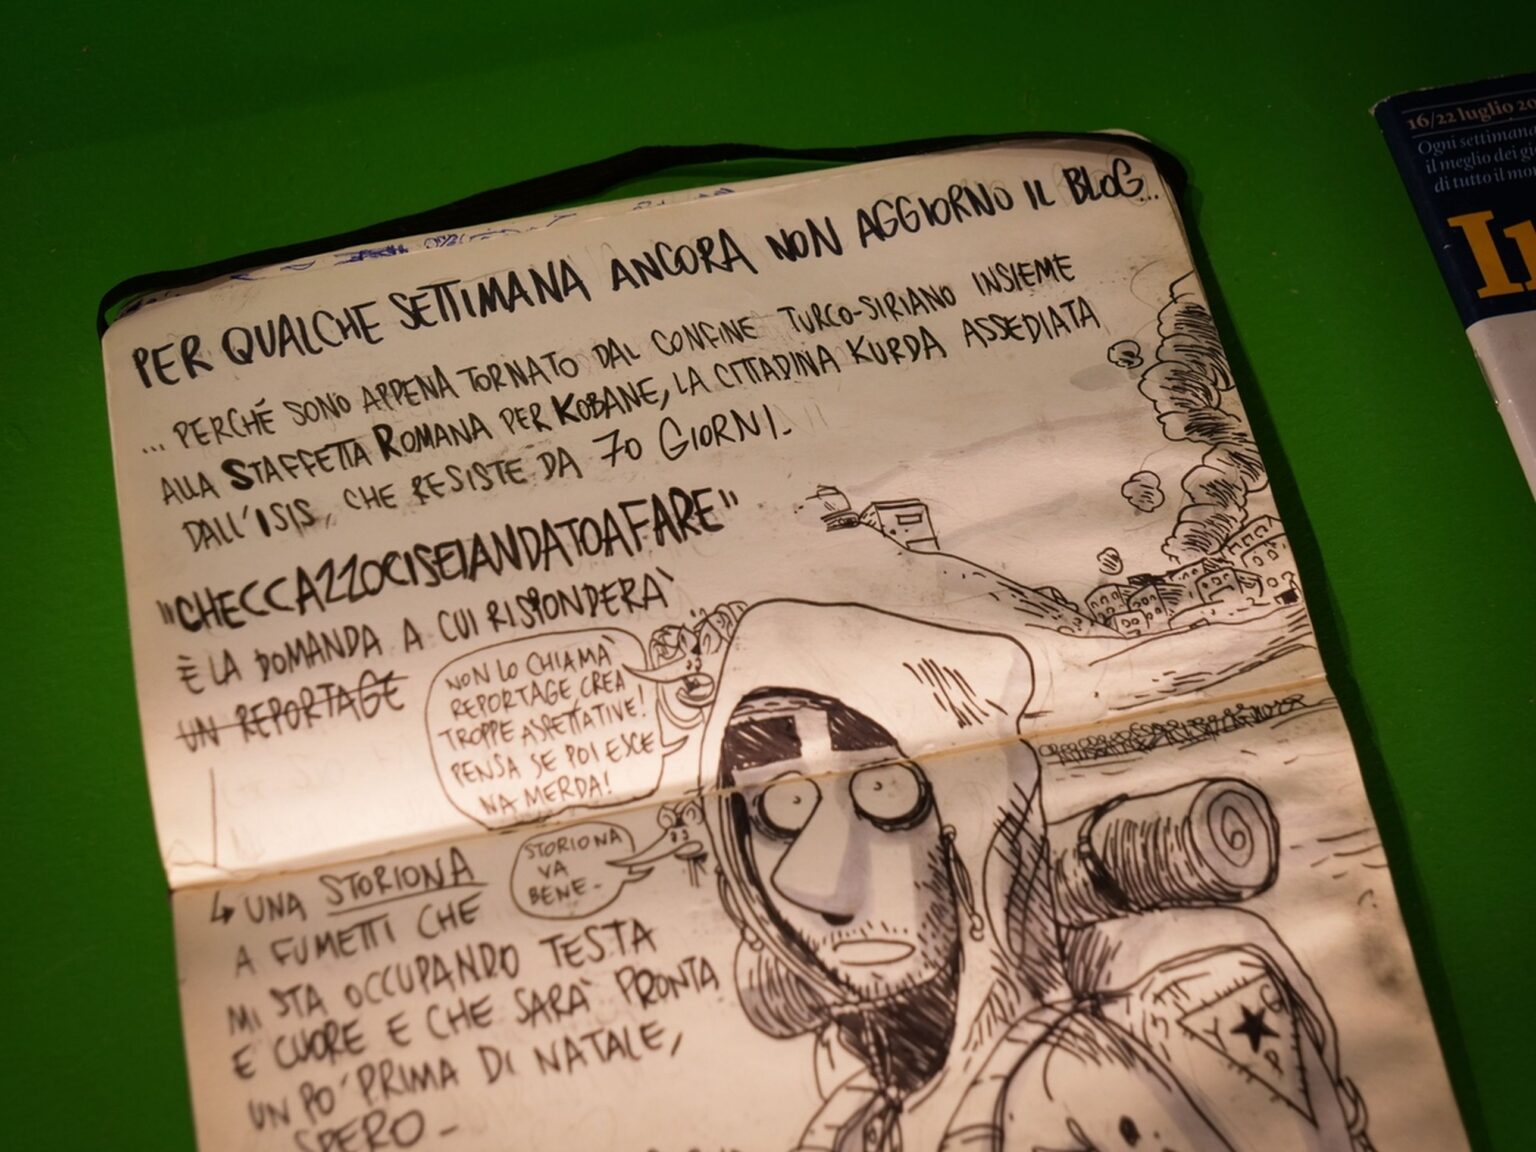 PER QUALCHE SETTIMANA ANCORA NON AGGIORNO IL BLOG...
... PERCHÉ SONO APPENA TORNATO DAL CONFINE TURCO-SIRIANO INSIEME
ALLA STAFFETTA ROMANA PER KOBANE, LA CITTADINA KURDA ASSEDIATA
DALL'ISIS, CHE RESISTE DA 70 GIORNI.
"CHECCAZZOCISEIANDATOAFARE"
È LA DOMANDA A CUI RISPONDERA'
UN REPORTAGE
NON LO CHIAMA'
REPORTAGE, CREA
TROPPE ASPETTATIVE!
PENSA SE POI ESCE
NA MERDA!
STORIONA
VA
BENE-
UNA STORIONA
A FUMETTI CHE
MI STA OCCUPANDO TESTA
E CUORE E CHE SARA' PRONTA
UN PO' PRIMA DI NATALE,
SPERO-
Y P G
16/22 luglio 20
Ogni settimana
il meglio dei gi
di tutto il mon
In